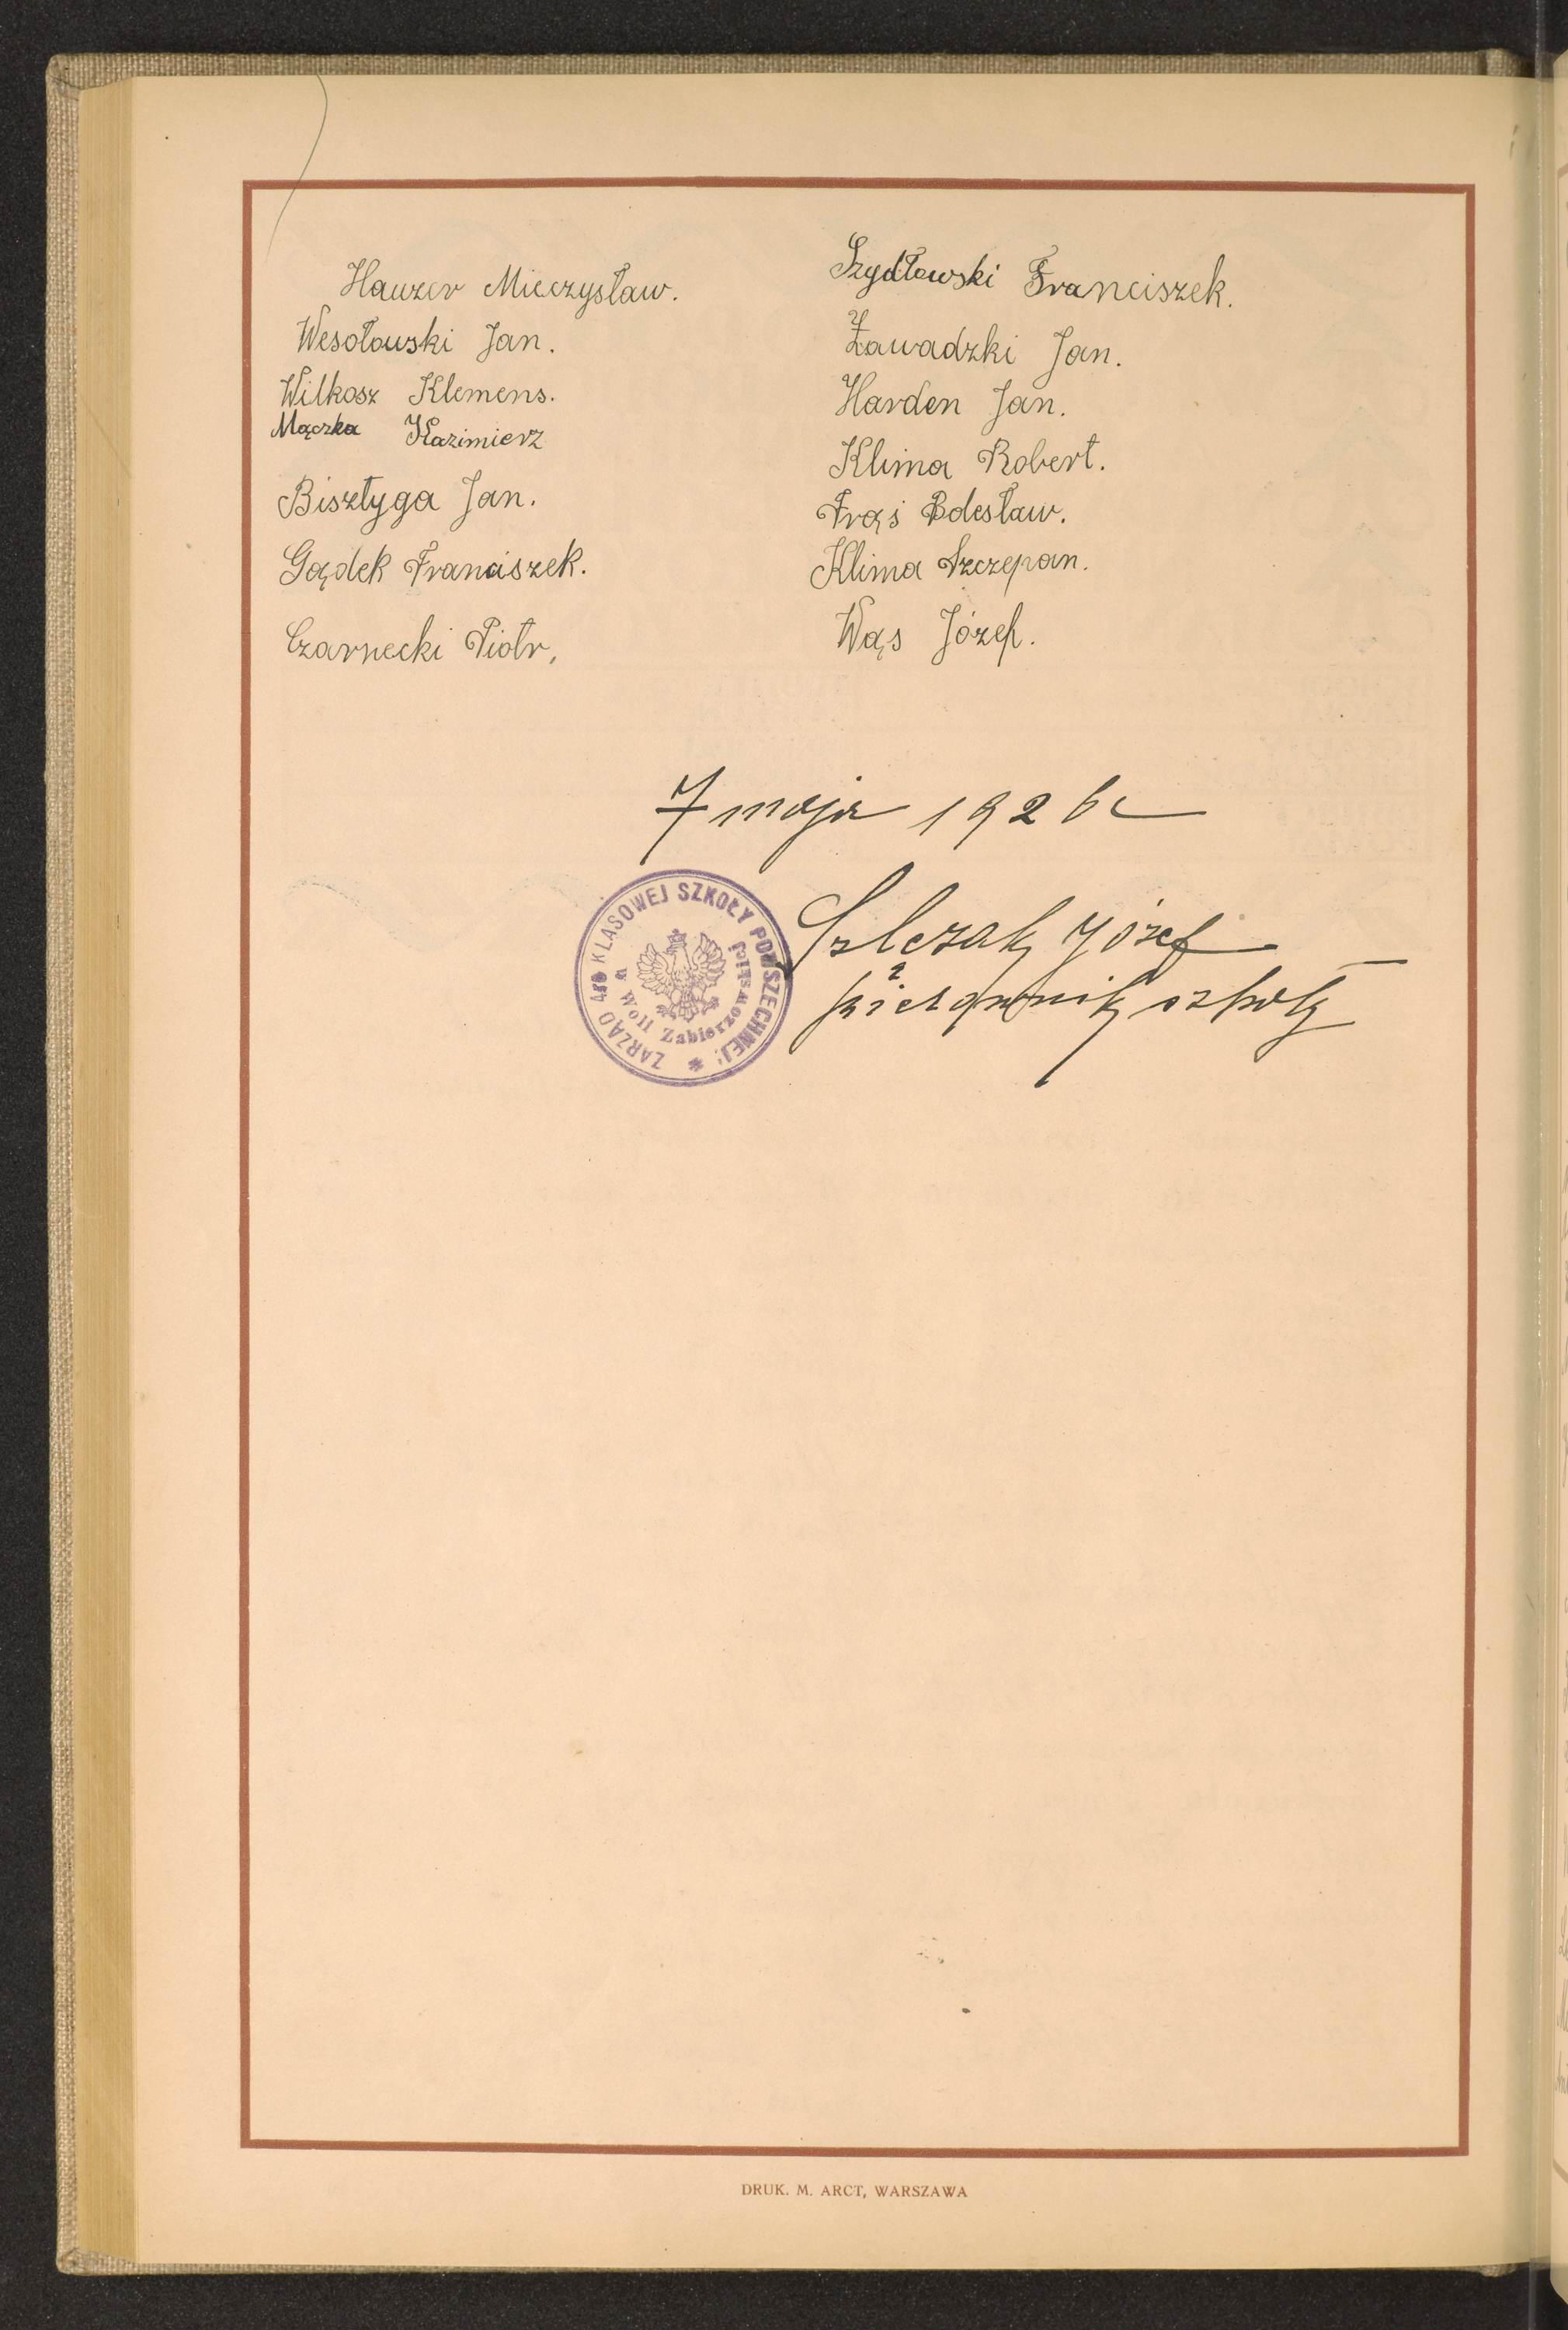 Hauzer Mieczysław.
Wesołowski Jan.
Wilkosz Klemens.
Mączka Kazimierz
Bisztyga Jan.
Gądek Franciszek.
Czarnecki Piotr,
Szydłowski Franciszek.
Zawadzki Jan.
Harden Jan.
Klima Robert.
Frąś Bolesław.
Klima Szczepan.
Wąs Józef.
7 maja 1926
ZARZĄD 4ro KLASOWEJ SZKOŁY POWSZECHNEJ
w Woli Zabierzowskiej
Józef
kierownik szkoły
DRUK. M. ARCT, WARSZAWA